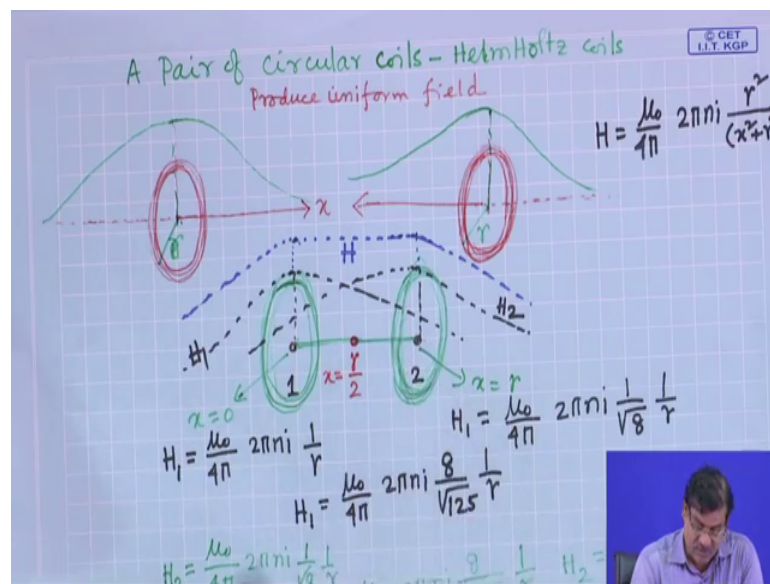 © CET
I.I.T. KGP
A Pair of circular coils - HelmHoltz coils
Produce uniform field
H = μ₀/4π 2πni r²/(x²+r
x
r
r
H
H₁
H₂
1
x = r/2
2
x=0
x=r
H₁ = μ₀/4π 2πni 1/r
H₁ = μ₀/4π 2πni 8/√125 1/r
H₁ = μ₀/4π 2πni 1/√8 1/r
H₂ = μ₀/4π 2πni 1/√8 1/r
8
H₂ =